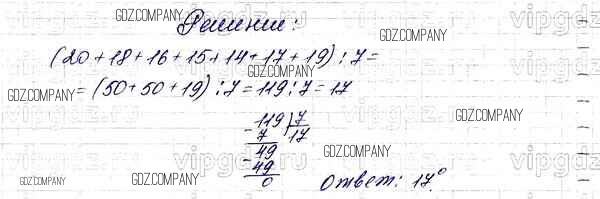 Решение:
(20+18+16+15+14+17+19):7=
=(50+50+19):7=119:7=17
119 7
-7 17
49
-49
0
Ответ: 17°.
GDZ.COMPANY GDZ.COMPANY GDZ.COMPANY
GDZ.COMPANY
GDZ.COMPANY GDZ.COMPANY
GDZ.COMPANY GDZ.COMPANY
GDZ.COMPANY GDZ.COMPANY
vipgdz.ru vipgdz.ru vipgdz.ru
vipgdz.ru vipgdz.ru vipgdz.ru